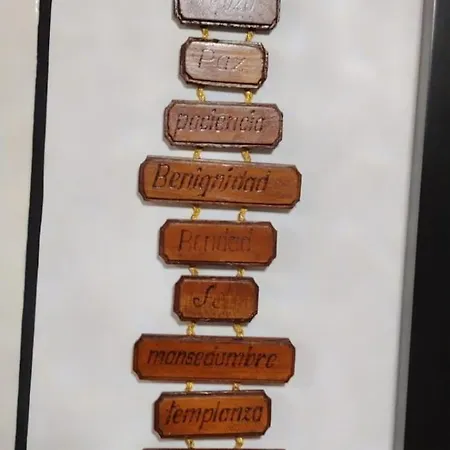 Gozo
Paz
paciencia
Benignidad
Bondad
Fe
mansedumbre
templanza